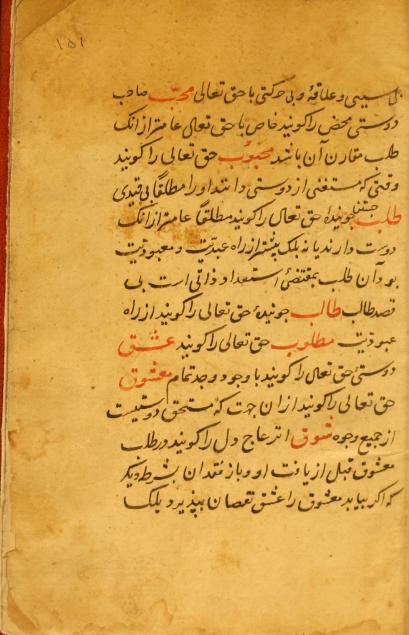 ۱۵۲
سببی و علاقهٔ و بی حرکتی با حق تعالی محبّ صاحب
دوستی محض را کویند خاص با حق تعالی عامتر از انک
طلب مقارن آن باشد محبوب حق تعالی را کویند
وقتی که مستغنی از دوستی دانند او را مطلقا بی قیدی
طلب جستن جویندهٔ حق تعالی را کویند مطلقا عامتر از انک
دوست دارند یا نه بلک بیشتر از راه عبدیّت و معبودیّت
بود آن طلب بمقتضیٔ استعداد ذاتی است بی
قصد طالب طالب جویندهٔ حق تعالی را کویند از راه
عبودیّت مطلوب حق تعالی را کویند عشق
دوستیٔ حق تعالی را کویند با وجود وجد تمام معشوق
حق تعالی را کویند از ان جهت که مستحق دوستیست
از جمیع وجوه شوق انزعاج دل را کویند در طلب
معشوق قبل از یافت او و باز فقدان بشرط دیگر
که اگر بیابد معشوق را عشق نقصان نپذیرد بلک